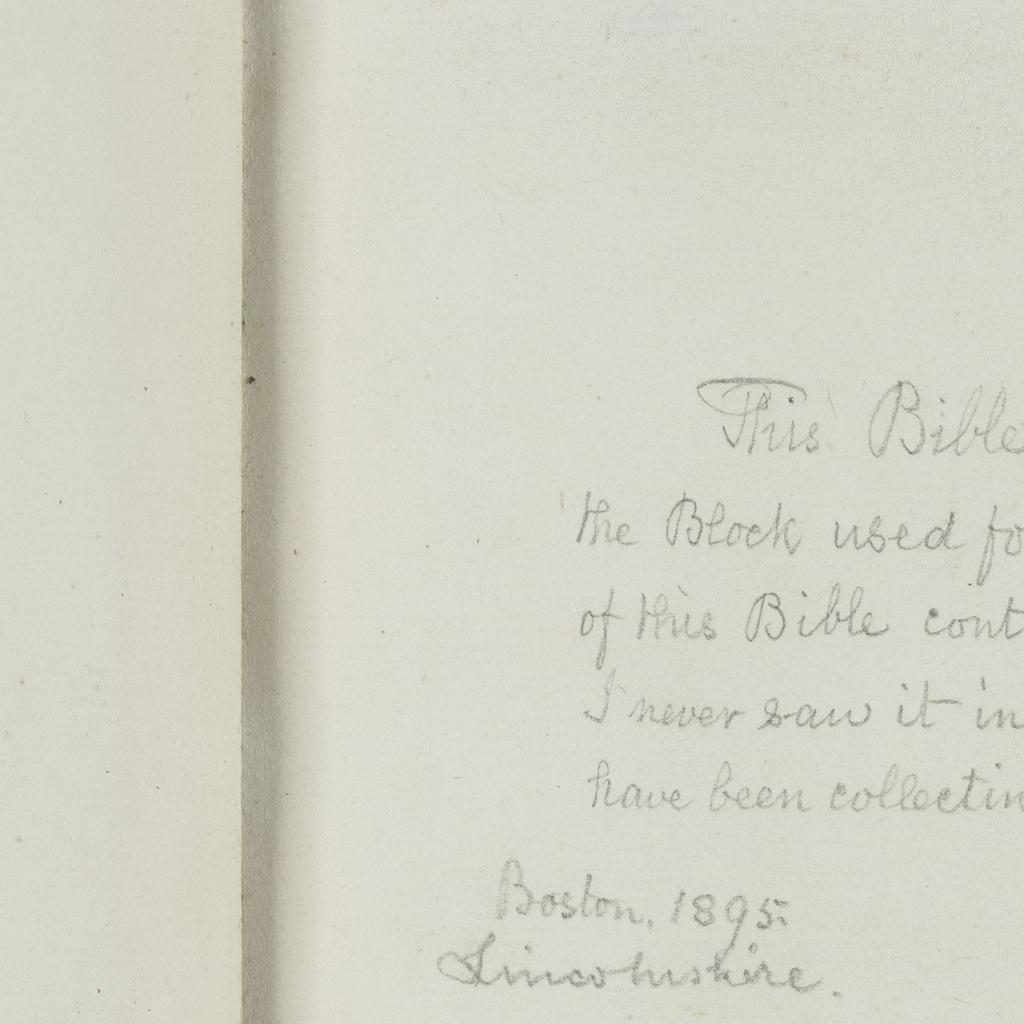 This Bible
the Block used fo
of this Bible cont
I never saw it in
have been collectin
Boston, 1895.
Lincolnshire.